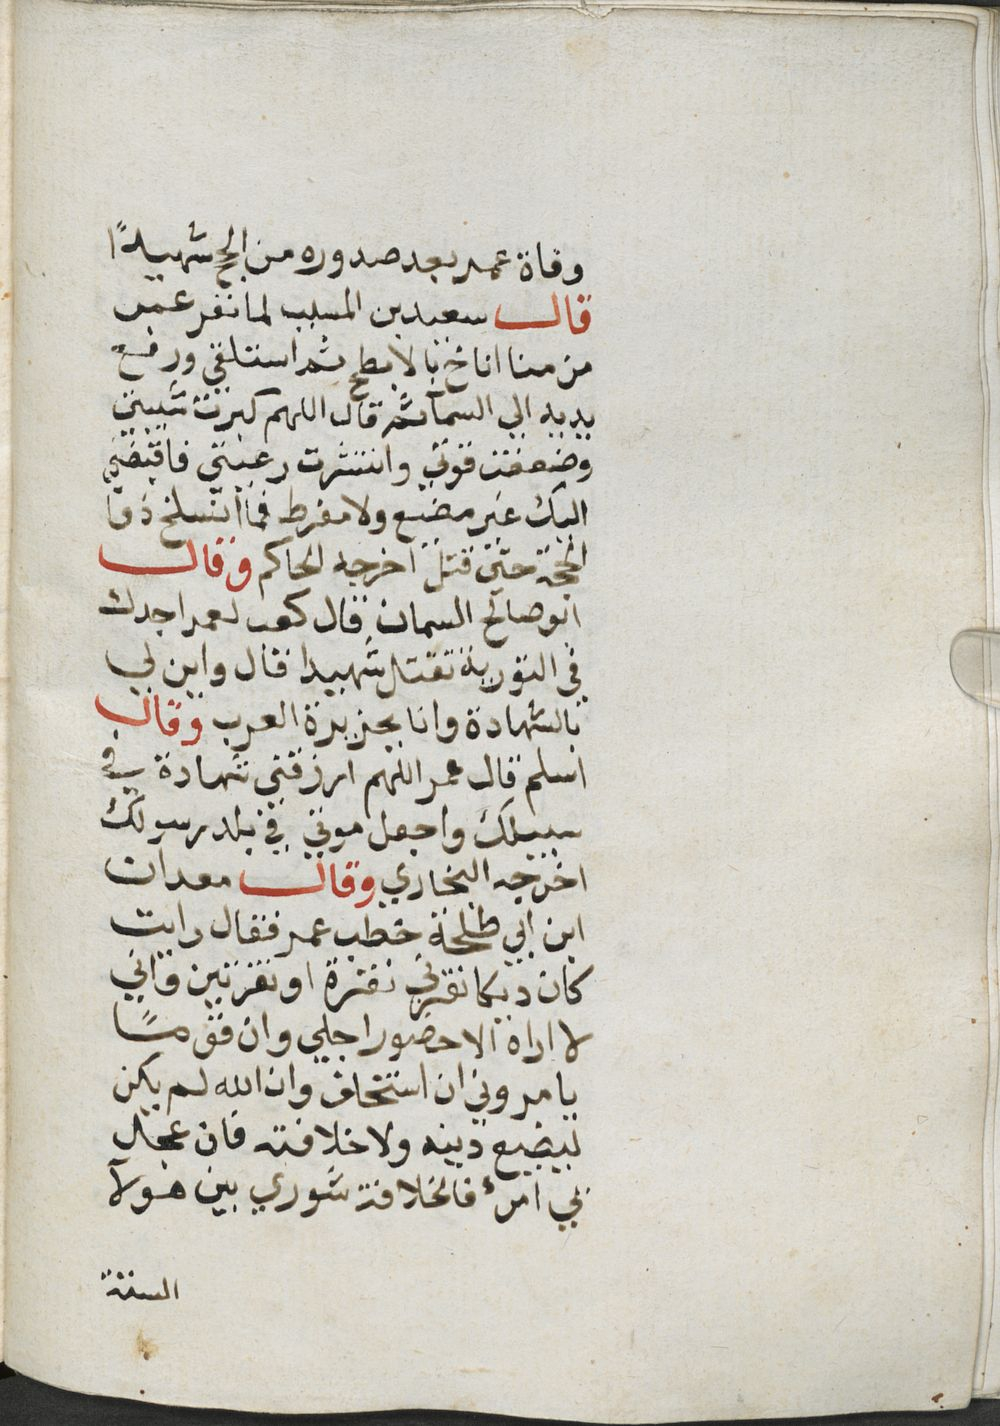 وفاة عمر بعد صدوره من الحج شهيدًا
قال سعيد بن المسيب لما نفر عمر
من منا اناخ بالابطح ثم استلقي ورفع
يديه الي السما ثم قال اللهم كبرت سني
وضعفت قوتي وانتشرت رعيتي فاقبضني
اليك غير مضيع ولا مفرط فما انسلخ ذوا
الحجة حتى قتل اخرجه الحاكم وقال
ابو صالح السمان قال كعب لعمر اجدك
في التورية تقتل شهيدا قال واين لي
بالشهادة وانا بجزيرة العرب وقال
اسلم قال عمر اللهم ارزقني شهادة في
سبيلك واجعل موتي في بلد رسولك
اخرجه البخاري وقال معدان
ابن ابي طلحة خطب عمر فقال رايت
كان ديكا نقرني نقرة او نقرتين واني
لا اراه الا حضور اجلي وان قومًا
يامروني ان استخلف وان الله لم يكن
ليضيع دينه ولا خلافته فان عجل
بي امرء فالخلافة شوري بين هولآ
الستة